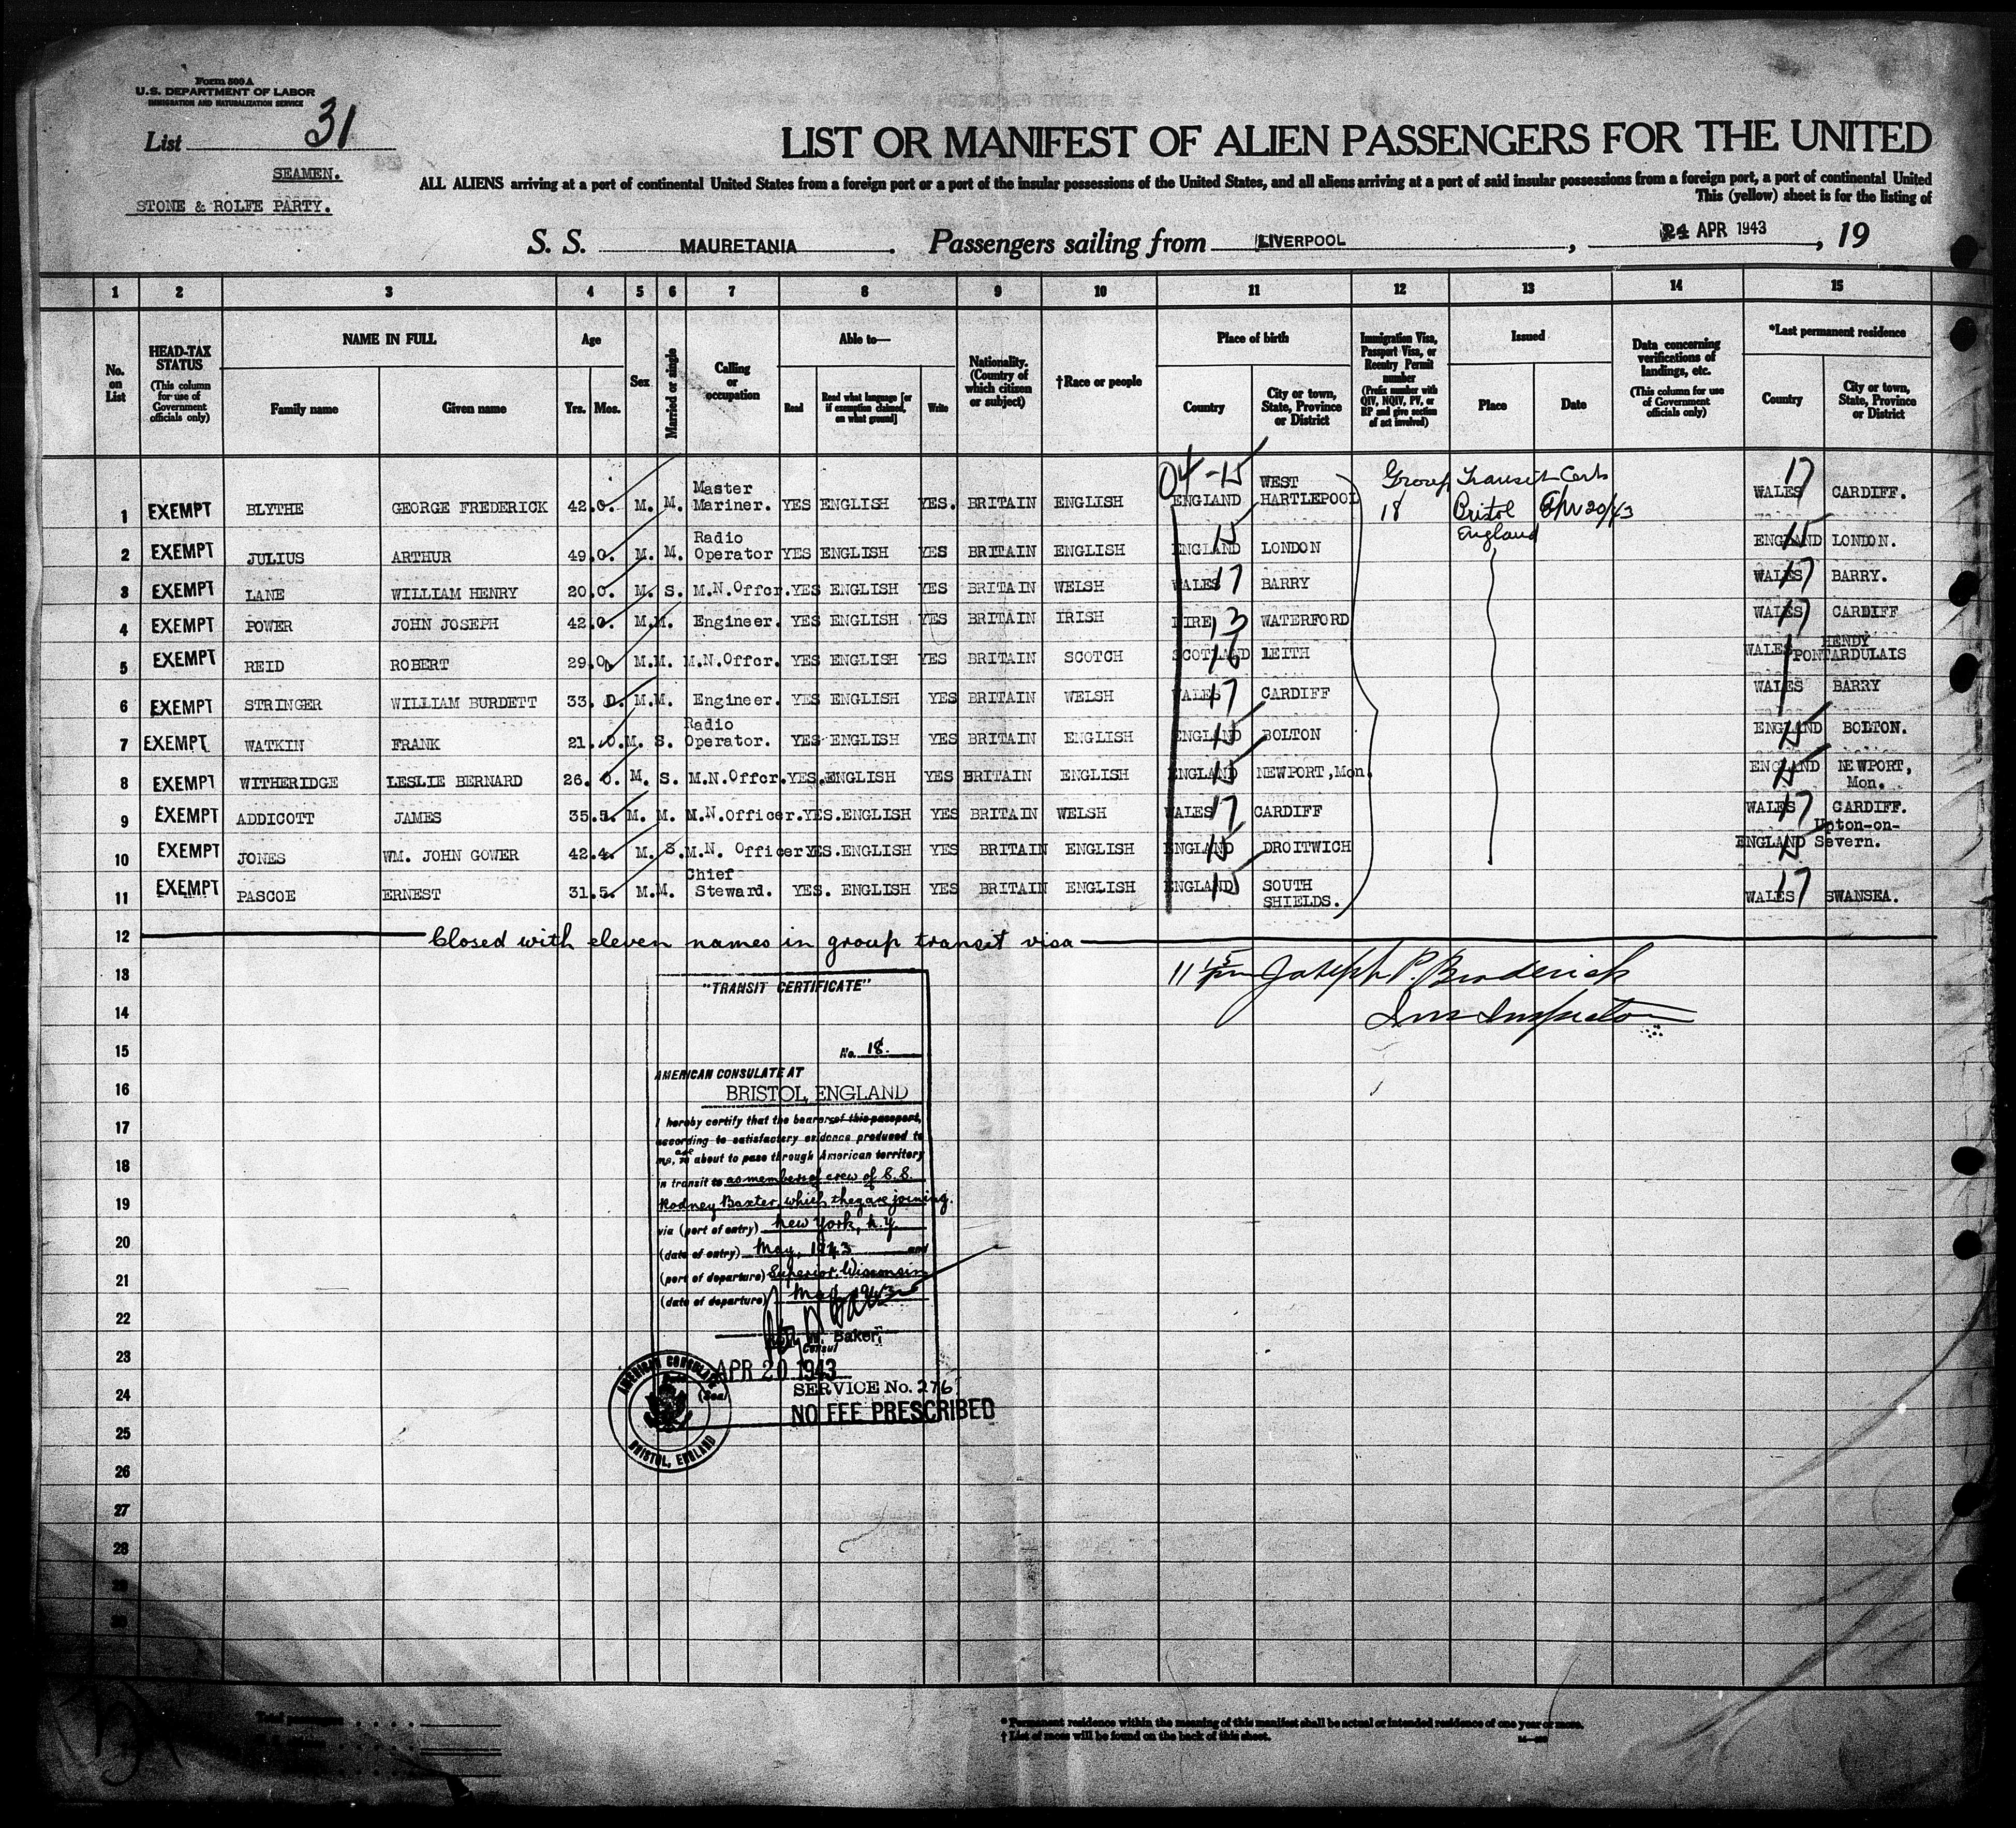 Form 500 A
U.S. DEPARTMENT OF LABOR
IMMIGRATION AND NATURALIZATION SERVICE
List 31
SEAMEN.
STONE & ROLFE PARTY.
LIST OR MANIFEST OF ALIEN PASSENGERS FOR THE UNITED
ALL ALIENS arriving at a port of continental United States from a foreign port or a port of the insular possessions of the United States, and all aliens arriving at a port of said insular possessions from a foreign port, a port of continental United
This (yellow) sheet is for the listing of
S. S. MAURETANIA. Passengers sailing from LIVERPOOL, 24 APR 1943, 19
1 2 3 4 5 6 7 8 9 10 11 12 13 14 15
No. on List
HEAD-TAX STATUS (This column for use of Government officials only)
NAME IN FULL
Family name
Given name
Age
Yrs. Mos.
Sex
Married or single
Calling or occupation
Able to—
Read
Read what language [or if exemption claimed, on what ground]
Write
Nationality. (Country of which citizen or subject)
†Race or people
Place of birth
Country
City or town, State, Province or District
Immigration Visa, Passport Visa, or Reentry Permit number (Prefix number with QIV, NQIV, PV, or RP and give section of act involved)
Issued
Place
Date
Data concerning verifications of landings, etc. (This column for use of Government officials only)
*Last permanent residence
Country
City or town, State, Province or District
04 - 15 Group Transit Certs 17
1 EXEMPT BLYTHE GEORGE FREDERICK 42. 0. M. M. Master Mariner. YES ENGLISH YES. BRITAIN ENGLISH ENGLAND WEST HARTLEPOOL 18 Bristol England Apr 20/43 WALES CARDIFF.
2 EXEMPT JULIUS ARTHUR 49. 0. M. M. Radio Operator YES ENGLISH YES BRITAIN ENGLISH ENGLAND 15 LONDON ENGLAND 15 LONDON.
3 EXEMPT LANE WILLIAM HENRY 20. 0. M. S. M.N.Offcr. YES ENGLISH YES BRITAIN WELSH WALES 17 BARRY WALES 17 BARRY.
4 EXEMPT POWER JOHN JOSEPH 42. 0. M. M. Engineer. YES ENGLISH YES BRITAIN IRISH EIRE 13 WATERFORD WALES 17 CARDIFF
5 EXEMPT REID ROBERT 29. 0. M. M. M.N.Offcr. YES ENGLISH YES BRITAIN SCOTCH SCOTLAND 16 LEITH WALES HENDY PONTARDULAIS
6 EXEMPT STRINGER WILLIAM BURDETT 33. 0. M. M. Engineer. YES ENGLISH YES BRITAIN WELSH WALES 17 CARDIFF WALES BARRY
7 EXEMPT WATKIN FRANK 21. 0. M. S. Radio Operator. YES ENGLISH YES BRITAIN ENGLISH ENGLAND 15 BOLTON ENGLAND 15 BOLTON.
8 EXEMPT WITHERIDGE LESLIE BERNARD 26. 0. M. S. M.N.Offcr. YES. ENGLISH YES BRITAIN ENGLISH ENGLAND 15 NEWPORT, Mon. ENGLAND 15 NEWPORT, Mon.
9 EXEMPT ADDICOTT JAMES 35. 5. M. M. M.N.Officer. YES. ENGLISH YES BRITAIN WELSH WALES 17 CARDIFF WALES 17 CARDIFF.
10 EXEMPT JONES WM. JOHN GOWER 42. 4. M. S. M.N. Officer YES. ENGLISH YES BRITAIN ENGLISH ENGLAND 15 DROITWICH ENGLAND 15 Upton-on-Severn.
11 EXEMPT PASCOE ERNEST 31. 5. M. M. Chief Steward. YES. ENGLISH YES BRITAIN ENGLISH ENGLAND 15 SOUTH SHIELDS. WALES 17 SWANSEA.
12 Closed with eleven names in group transit visa
13 11 15 pm Joseph P. Broderick
14 Imm Inspector
"TRANSIT CERTIFICATE"
15 No. 18.
AMERICAN CONSULATE AT
16 BRISTOL, ENGLAND
17 I hereby certify that the bearer of this passport,
according to satisfactory evidence produced to
18 me, is are about to pass through American territory
in transit to as members of crew of S.S.
19 Rodney Baxter, which they are joining.
via (port of entry) New York, N.Y.
20 (date of entry) May, 1943 and
21 (port of departure) Superior, Wisconsin
(date of departure) May 1943
22 W. Baker,
Consul
23 APR 20 1943
(Seal)
24 SERVICE No. 276
NO FEE PRESCRIBED
AMERICAN CONSULATE
BRISTOL, ENGLAND
25
26
27
28
29
30
Total passengers
* Permanent residence within the meaning of this manifest shall be actual or intended residence of one year or more.
† List of races will be found on the back of this sheet.